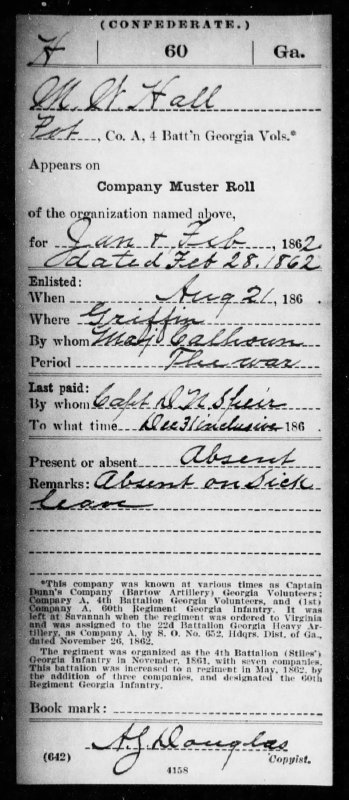 (CONFEDERATE.)
H 60 Ga.
M. W Hall
Pvt, Co. A, 4 Batt'n Georgia Vols.*
Appears on
Company Muster Roll
of the organization named above,
for Jan & Feb, 1862
dated Feb 28, 1862
Enlisted:
When Aug 21, 186 .
Where Griffin
By whom Maj Calhoun
Period The war
Last paid:
By whom Capt D N Speir
To what time Dec 31 inclusive 186 .
Present or absent Absent
Remarks: Absent on Sick
leave
*This company was known at various times as Captain
Dunn's Company (Bartow Artillery) Georgia Volunteers;
Company A, 4th Battalion Georgia Volunteers, and (1st)
Company A, 60th Regiment Georgia Infantry. It was
left at Savannah when the regiment was ordered to Virginia
and was assigned to the 22d Battalion Georgia Heavy Ar-
tillery, as Company A, by S. O. No. 652, Hdqrs. Dist. of Ga.,
dated November 26, 1862.
The regiment was organized as the 4th Battalion (Stiles')
Georgia Infantry in November, 1861, with seven companies.
This battalion was increased to a regiment in May, 1862, by
the addition of three companies, and designated the 60th
Regiment Georgia Infantry.
Book mark:
A. J. Douglas
(642) Copyist.
4158